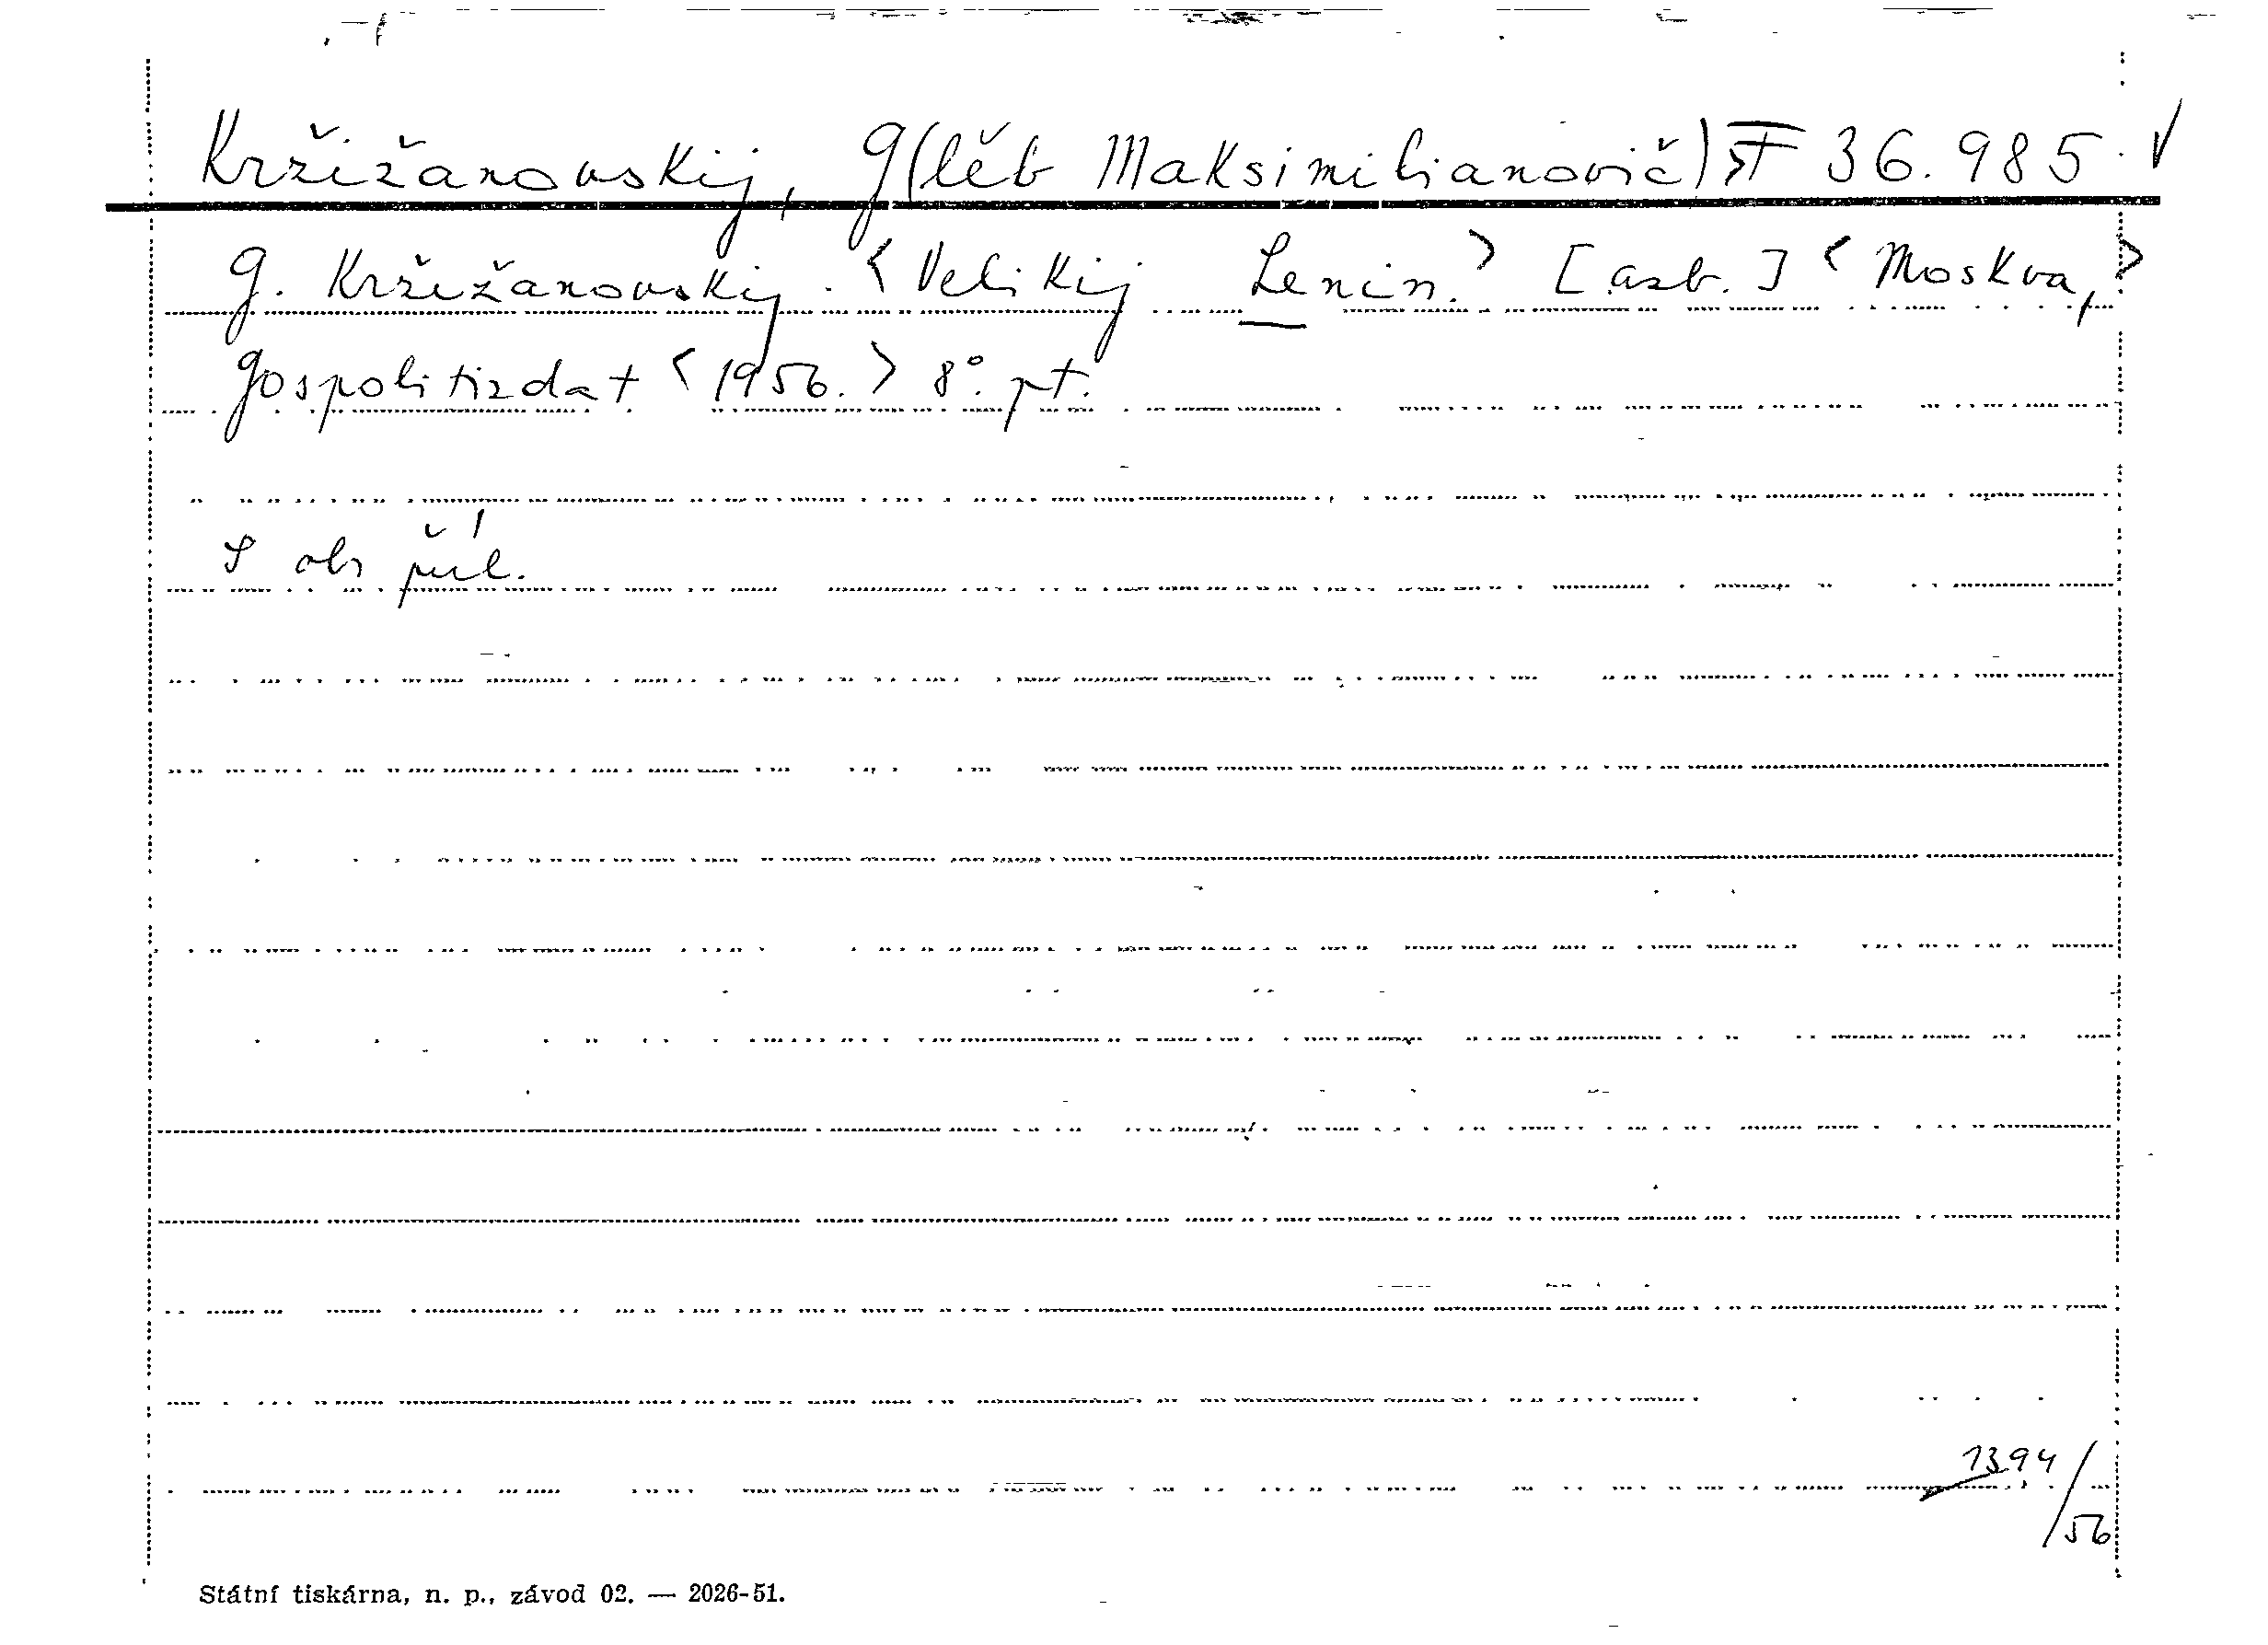 Kržižanovskij, G(lěb Maksimilianovič) 36.985.
G. Kržižanovskij. <Velikij Lenin.> [azb.] <Moskva,>
Gospolitizdat <1956.> 8°. pt.
S obr příl.
1394/56
Státní tiskárna, n. p., závod 02. — 2026-51.